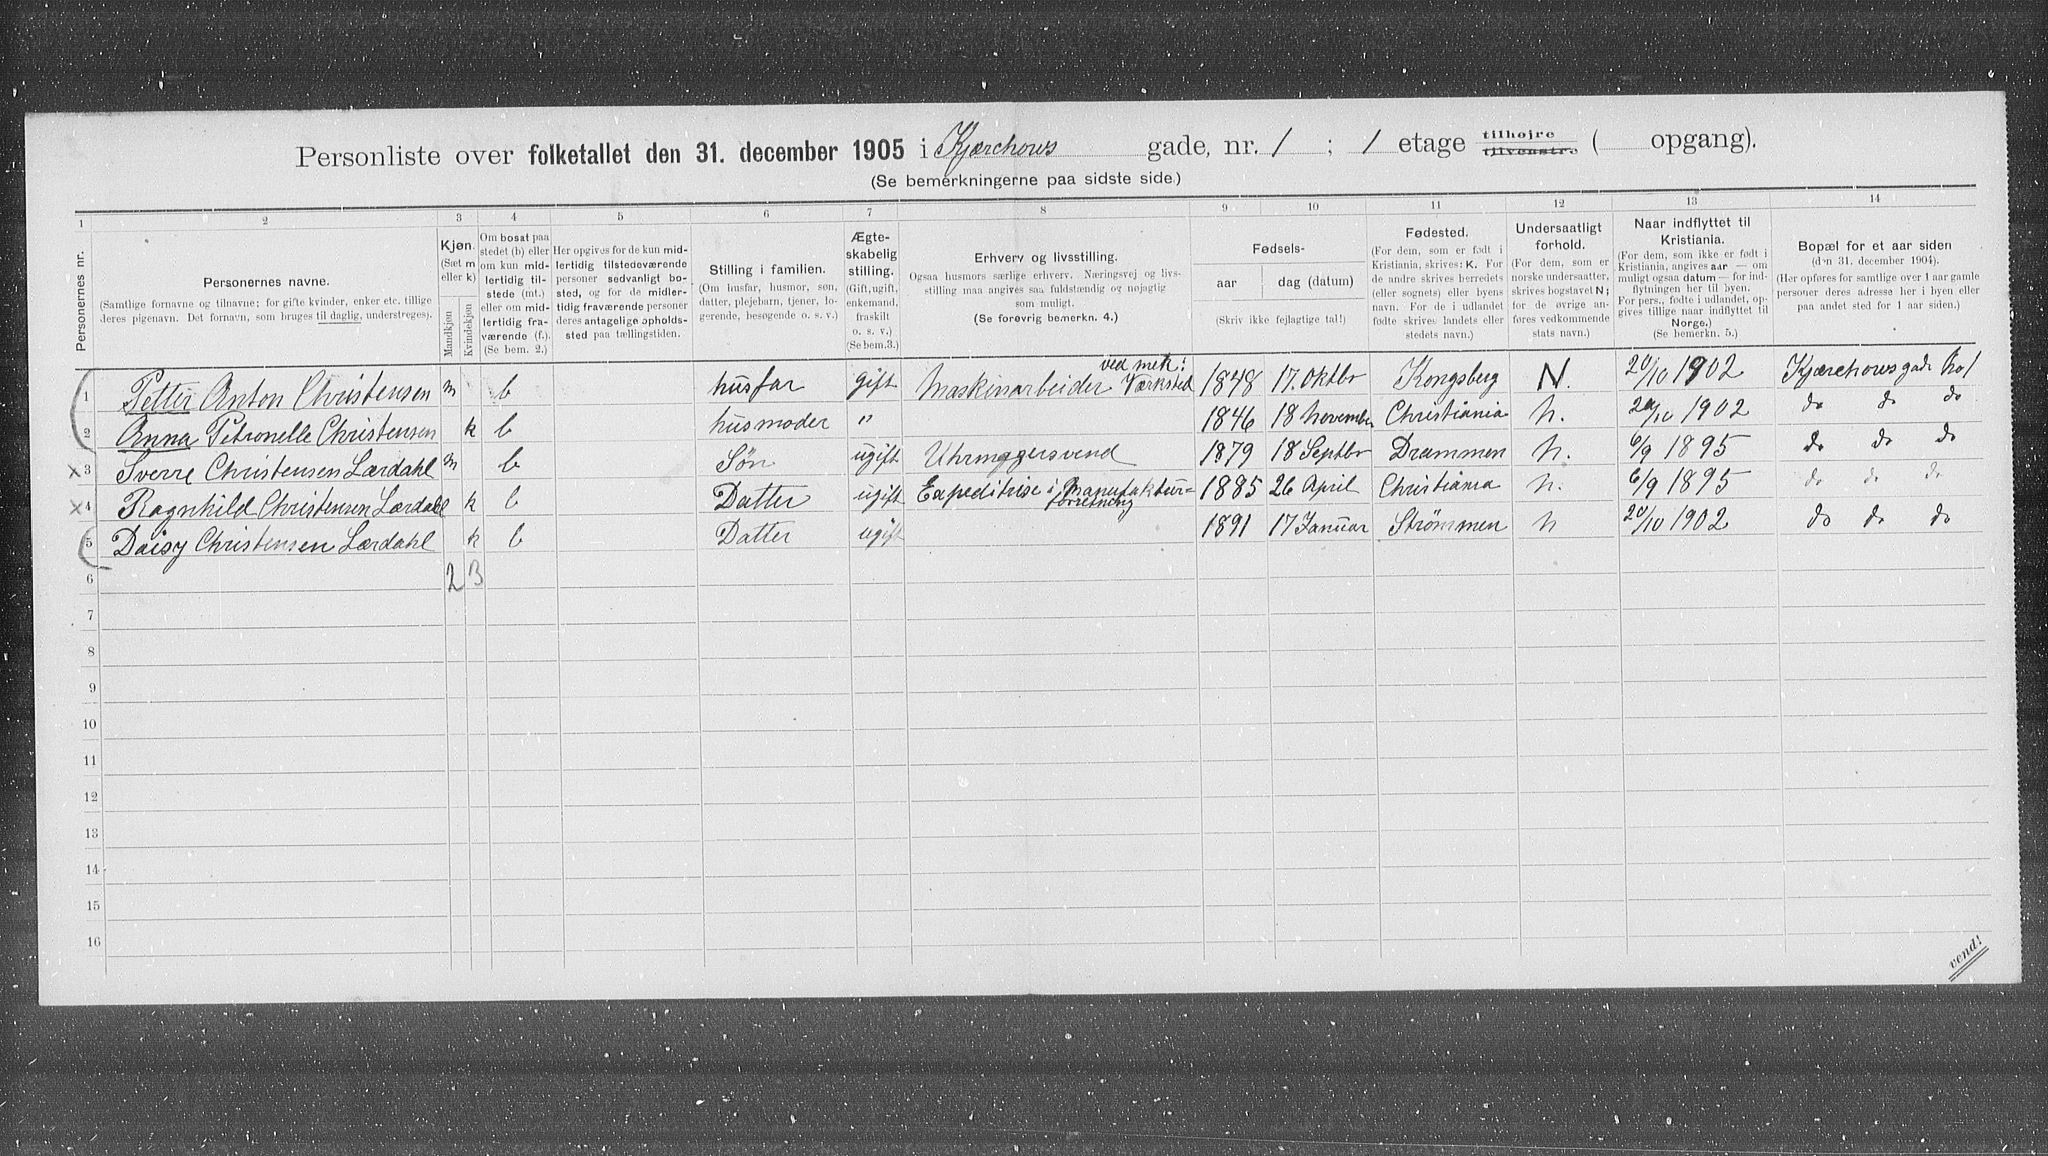 Personliste over folketallet den 31. december 1905 i Kjærchows gade, nr. 1 ; 1 etage tilhøjre tilvenstre ( opgang).
(Se bemerkningerne paa sidste side.)
1 2 3 4 5 6 7 8 9 10 11 12 13 14
Personernes nr.
Personernes navne.
(Samtlige fornavne og tilnavne; for gifte kvinder, enker etc. tillige
deres pigenavn. Det fornavn, som bruges til daglig, understreges).
Kjøn.
(Sæt m
eller k)
Mandkjøn
Kvindekjøn
Om bosat paa
stedet (b) eller
om kun mid-
lertidig til-
stede (mt.)
eller om mid-
lertidig fra-
værende (f.).
(Se bem. 2.)
Her opgives for de kun mid-
lertidig tilstedeværende
personer sedvanligt bo-
sted, og for de midler-
tidig fraværende personer
deres antagelige opholds-
sted paa tællingstiden.
Stilling i familien.
(Om husfar, husmor, søn,
datter, plejebarn, tjener, lo-
gerende, besøgende o. s. v.)
Ægte-
skabelig
stilling.
(Gift, ugift,
enkemand,
fraskilt
o. s. v.)
(Se bem. 3.)
Erhverv og livsstilling.
Ogsaa husmors særlige erhverv. Næringsvej og livs-
stilling maa angives saa fuldstændig og nøjagtig
som muligt.
(Se forøvrig bemerkn. 4.)
Fødsels-
aar
dag (datum)
(Skriv ikke fejlagtige tal!)
Fødested.
(For dem, som er født i
Kristiania, skrives: K. For
de andre skrives herredets
(eller sognets) eller byens
navn. For de i udlandet
fødte skrives landets eller
stedets navn.)
Undersaatligt
forhold.
(For dem, som er
norske undersaatter,
skrives bogstavet N;
for de øvrige an-
føres vedkommende
stats navn.)
Naar indflyttet til
Kristiania.
(For dem, som ikke er født i
Kristiania, angives aar — om
muligt ogsaa datum — for ind-
flytningen her til byen.
For pers., fødte i udlandet, op-
gives tillige naar indflyttet til
Norge.)
(Se bemerkn. 5.)
Bopæl for et aar siden
(d'n 31. december 1904).
(Her opføres for samtlige over 1 aar gamle
personer deres adresse her i byen eller
paa andet sted for 1 aar siden.)
1 Petter Anton Christensen m b husfar gift Maskinarbeider ved mek: Værksted 1848 17. Oktbr Kongsberg N. 20/10 1902 Kjærchowsgade No 1
2 Anna Petronelle Christensen k b husmoder " 1846 18 November Christiania N. 20/10 1902 do do do
x 3 Sverre Christensen Lærdahl m b Søn ugift Uhrmagersvend 1879 18 Septbr Drammen N. 6/9 1895 do do do
x 4 Ragnhild Christensen Lærdahl k b Datter ugift Expeditrise i Manufaktur= forretning 1885 26 April Christiania N. 6/9 1895 do do do
5 Daisy Christensen Lærdahl k b Datter ugift 1891 17 Januar Strömmen N 20/10 1902 do do do
6 2 3
7
8
9
10
11
12
13
14
15
16
vend!